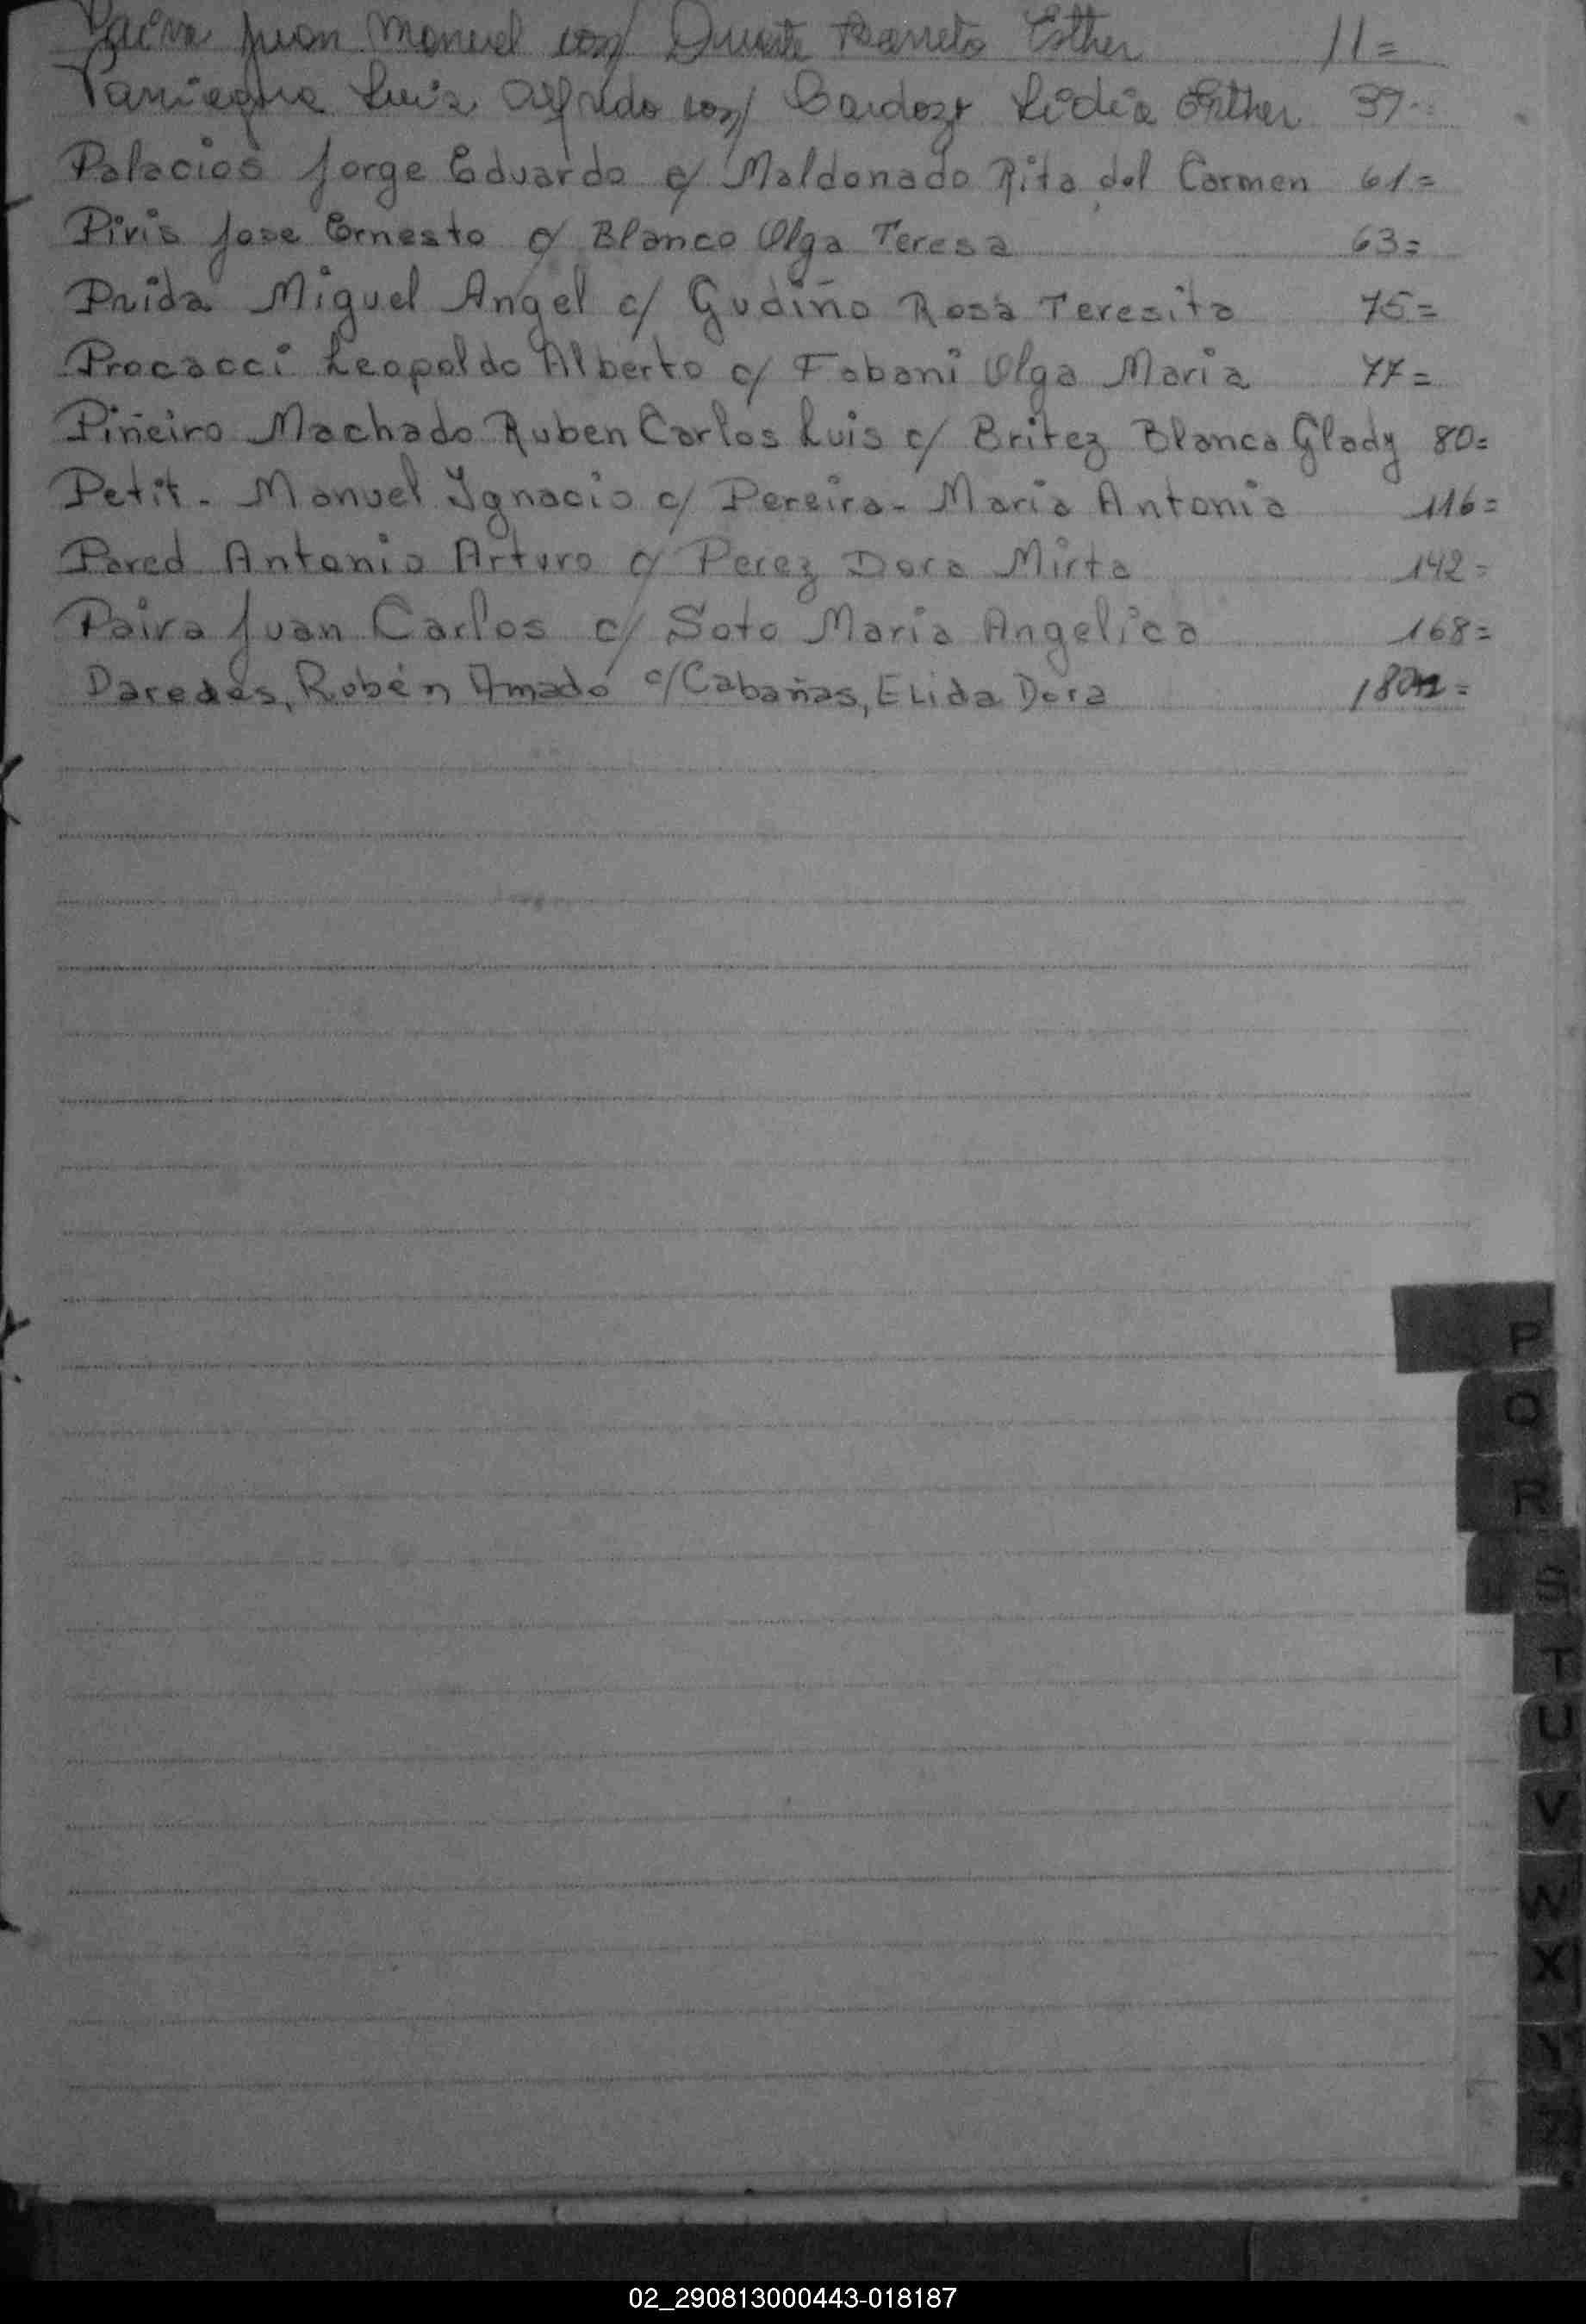 Paiva Juan Manuel con/ Duarte Barreto Esther 11=
Paniagua Luis Alfredo con/ Cardozo Lidia Esther 39=
Palacios Jorge Eduardo c/ Maldonado Rita del Carmen 61=
Piris Jose Ernesto c/ Blanco Olga Teresa 63=
Prida Miguel Angel c/ Gudiño Rosa Teresita 75=
Procacci Leopoldo Alberto c/ Fabani Olga Maria 77=
Piñeiro Machado Ruben Carlos Luis c/ Britez Blanca Glady 80=
Petit - Manuel Ygnacio c/ Pereira - Maria Antonia 116=
Pared Antonio Arturo c/ Perez Dora Mirta 142=
Paiva Juan Carlos c/ Soto Maria Angelica 168=
Paredes, Robén Amado c/ Cabañas, Elida Dora
P
Q
R
S
T
U
V
W
X
Y
Z
02_290813000443-018187